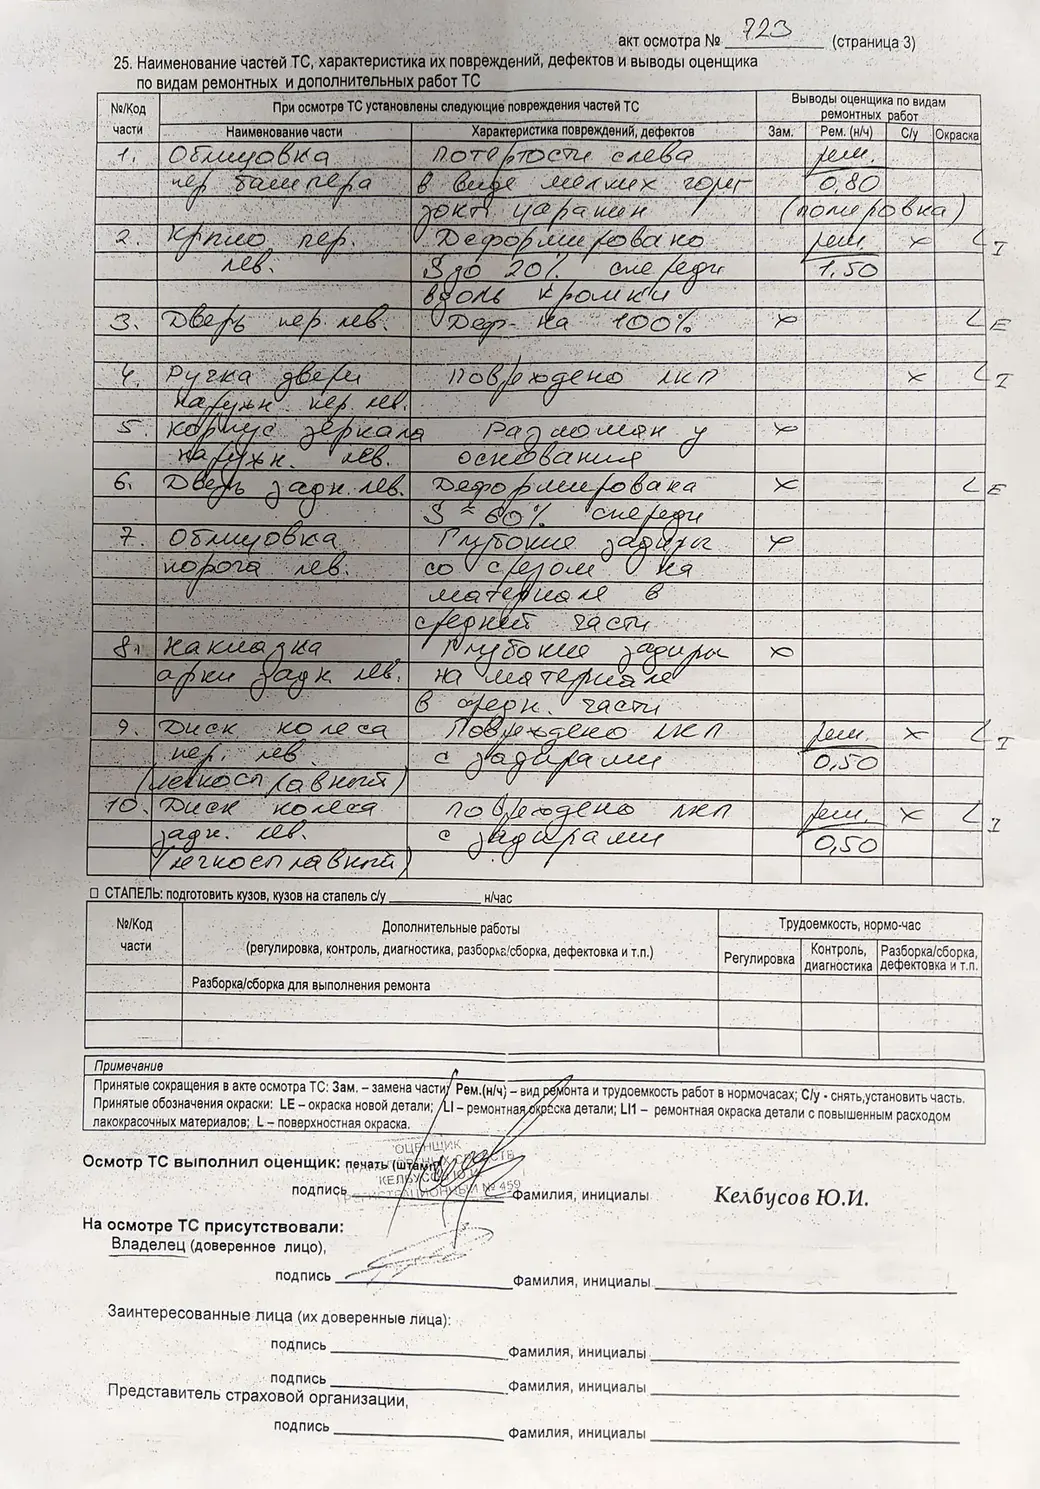 акт осмотра № 723 (страница 3)
25. Наименование частей ТС, характеристика их повреждений, дефектов и выводы оценщика
по видам ремонтных и дополнительных работ ТС
№/Код части При осмотре ТС установлены следующие повреждения частей ТС Выводы оценщика по видам ремонтных работ
Наименование части Характеристика повреждений, дефектов Зам. Рем. (н/ч) С/у Окраска
1. Облицовка потертости слева рем.
пер бампера в виде мелких гори- 0,80
зонт царапин (полировка)
2. Крыло пер. Деформировано рем. x LI
лев. S до 20% спереди 1.50
вдоль кромки
3. Дверь пер. лев. Деф- на 100% x LE
4. Ручка двери Повреждено ЛКП x LI
наружн пер. лев.
5. корпус зеркала Разломан у x
наружн. лев. основания
6. Дверь задн. лев. Деформирована x LE
S ≈ 60% спереди
7. Облицовка Глубокие задиры x
порога лев. со срезом на
материале в
средней части
8. Накладка Глубокие задиры x
арки задн лев. на материале
в средн. части
9. Диск колеса Повреждено ЛКП рем. x LI
пер. лев. с задирами 0,50
(легкосплавный)
10. Диск колеса повреждено ЛКП рем. x LI
задн. лев. с задирами 0,50
(легкосплавный)
□ СТАПЕЛЬ: подготовить кузов, кузов на стапель с/у ____________ н/час
№/Код части Дополнительные работы Трудоемкость, нормо-час
(регулировка, контроль, диагностика, разборка/сборка, дефектовка и т.п.) Регулировка Контроль, диагностика Разборка/сборка, дефектовка и т.п.
Разборка/сборка для выполнения ремонта
Примечание
Принятые сокращения в акте осмотра ТС: Зам. – замена части; Рем.(н/ч) – вид ремонта и трудоемкость работ в нормочасах; С/у - снять,установить часть.
Принятые обозначения окраски: LE – окраска новой детали; LI – ремонтная окраска детали; LI1 – ремонтная окраска детали с повышенным расходом
лакокрасочных материалов; L – поверхностная окраска.
ОЦЕНЩИК
Осмотр ТС выполнил оценщик: печать (штамп)
КЕЛБУСОВ Ю.И.
РЕГИСТРАЦИОННЫЙ № 459
подпись ____________ Фамилия, инициалы Келбусов Ю.И.
На осмотре ТС присутствовали:
Владелец (доверенное лицо),
подпись ____________ Фамилия, инициалы ____________
Заинтересованные лица (их доверенные лица):
подпись ____________ Фамилия, инициалы ____________
подпись ____________ Фамилия, инициалы ____________
Представитель страховой организации,
подпись ____________ Фамилия, инициалы ____________